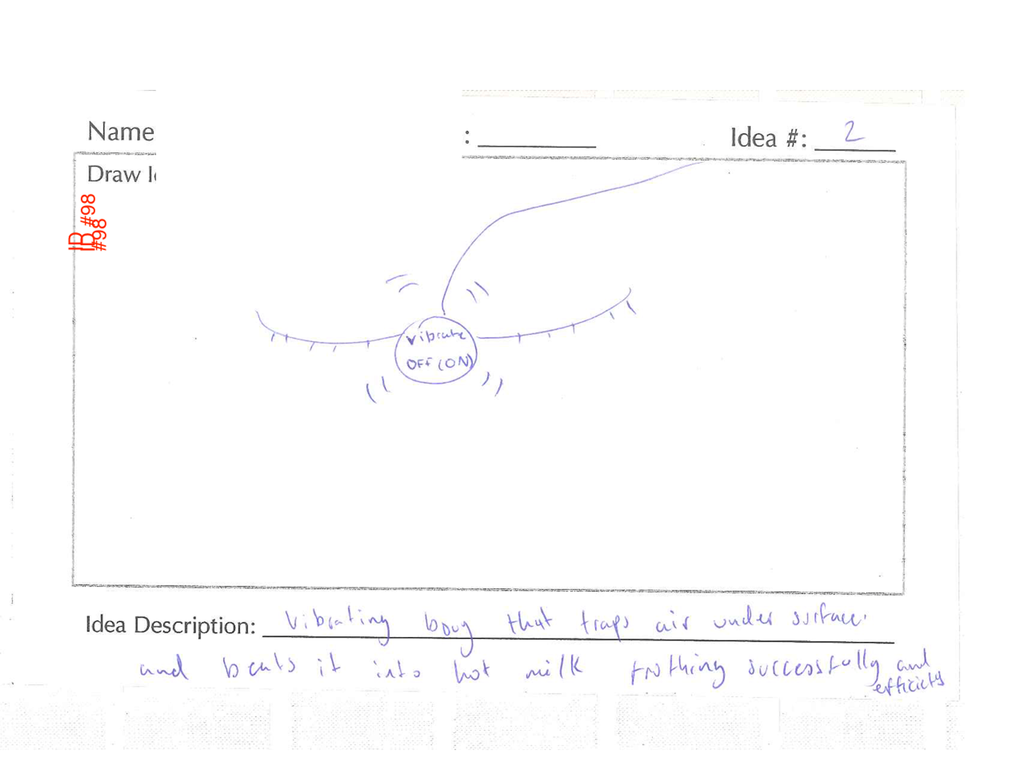 Name : Idea #: 2
Draw I
ID #98
#98
vibrate
OFF (ON)
Idea Description: Vibrating bouy that traps air under surface
and beats it into hot milk frothing successfully and